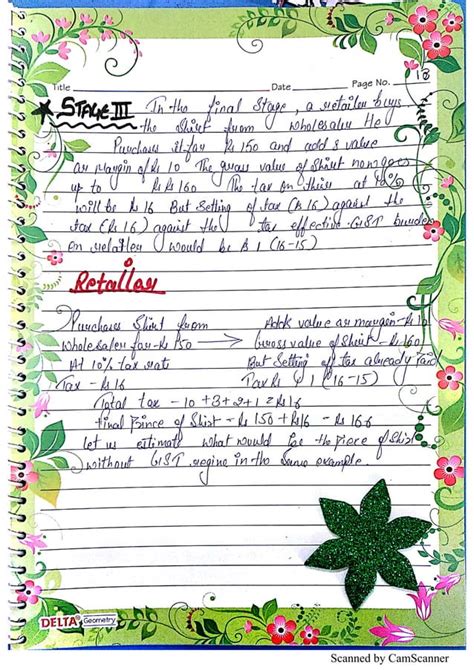 Title Date Page No. 18
STAGE III In the final Stage, a retailer buys
the shirt from wholesaler He
Purchases it for Rs 150 and adds value
or margin of Rs 10 The gross value of Shirt now goes
up to Rs Rs 160 The tax on this at 10%
will be Rs 16 But Setting of tax (Rs 16) against the
tax (Rs 16) against the tax effective GIST burden
on retailer would be Rs 1 (16-15)
Retailer
Purchases Shirt from Adds value or margin - Rs 10
wholesaler for Rs 150 → Gross value of Shirt - Rs 160
At 10% tax rate But Setting of tax already paid
Tax - Rs 16 Tax Rs 1 (16-15)
Total tax - 10+3+2+1 = Rs 16
final Prince of Shirt - Rs 150 + Rs 16 - Rs 166
let us estimate what would be the piece of Shirt
without GIST regine in the Same example.
DELTA Geometry
Scanned by CamScanner